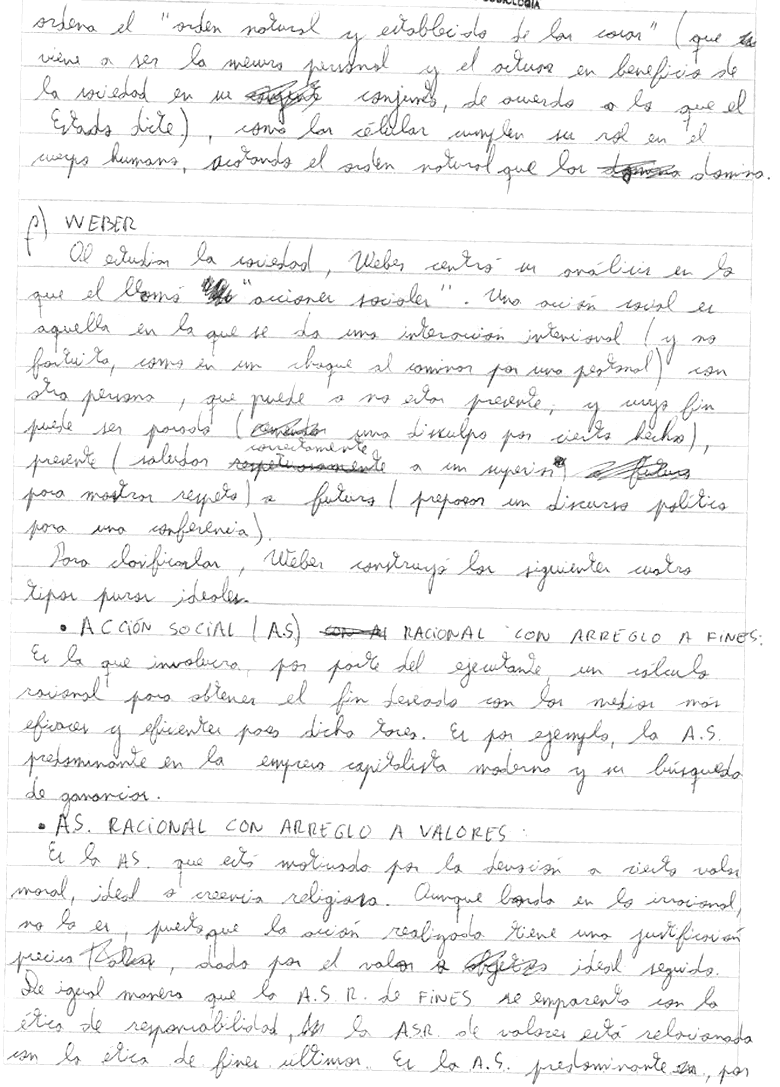 SOCIOLOGIA
ordena el "orden natural y establecido de las cosas" (que
viene a ser la mesura personal y el actuar en beneficio de
la sociedad en su conjunto, de acuerdo a lo que el
Estado dicte), como las células cumplen su rol en el
cuerpo humano, acatando el orden natural que las domina.
β) WEBER
Al estudiar la sociedad, Weber centró su análisis en lo
que el llamó "acciones sociales". Una acción social es
aquella en la que se da una interacción intencional (y no
fortuita, como en un choque al caminar por una peatonal) con
otra persona, que puede o no estar presente, y cuyo fin
puede ser pasado (una disculpa por cierto hecho),
presente (saludar correctamente a un superior
para mostrar respeto) o futuro (preparar un discurso político
para una conferencia).
Para clasificarlas, Weber construyó los siguientes cuatro
tipos puros ideales.
• ACCIÓN SOCIAL (A.S) RACIONAL CON ARREGLO A FINES:
Es la que involucra, por parte del ejecutante, un cálculo
racional para obtener el fin deseado con los medios más
eficaces y eficientes para dicha tarea. Es por ejemplo, la A.S.
predominante en la empresa capitalista moderna y su búsqueda
de ganancias.
• A.S. RACIONAL CON ARREGLO A VALORES:
Es la AS. que está motivada por la devoción a cierto valor
moral, ideal o creencia religiosa. Aunque borda en lo irracional,
no lo es, puesto que la acción realizada tiene una justificación
precisa, dada por el valor o ideal seguido.
De igual manera que la A.S.R. de FINES se emparenta con la
ética de responsabilidad, la ASR. de valores está relacionada
con la ética de fines últimos. Es la A.S. predominante, por